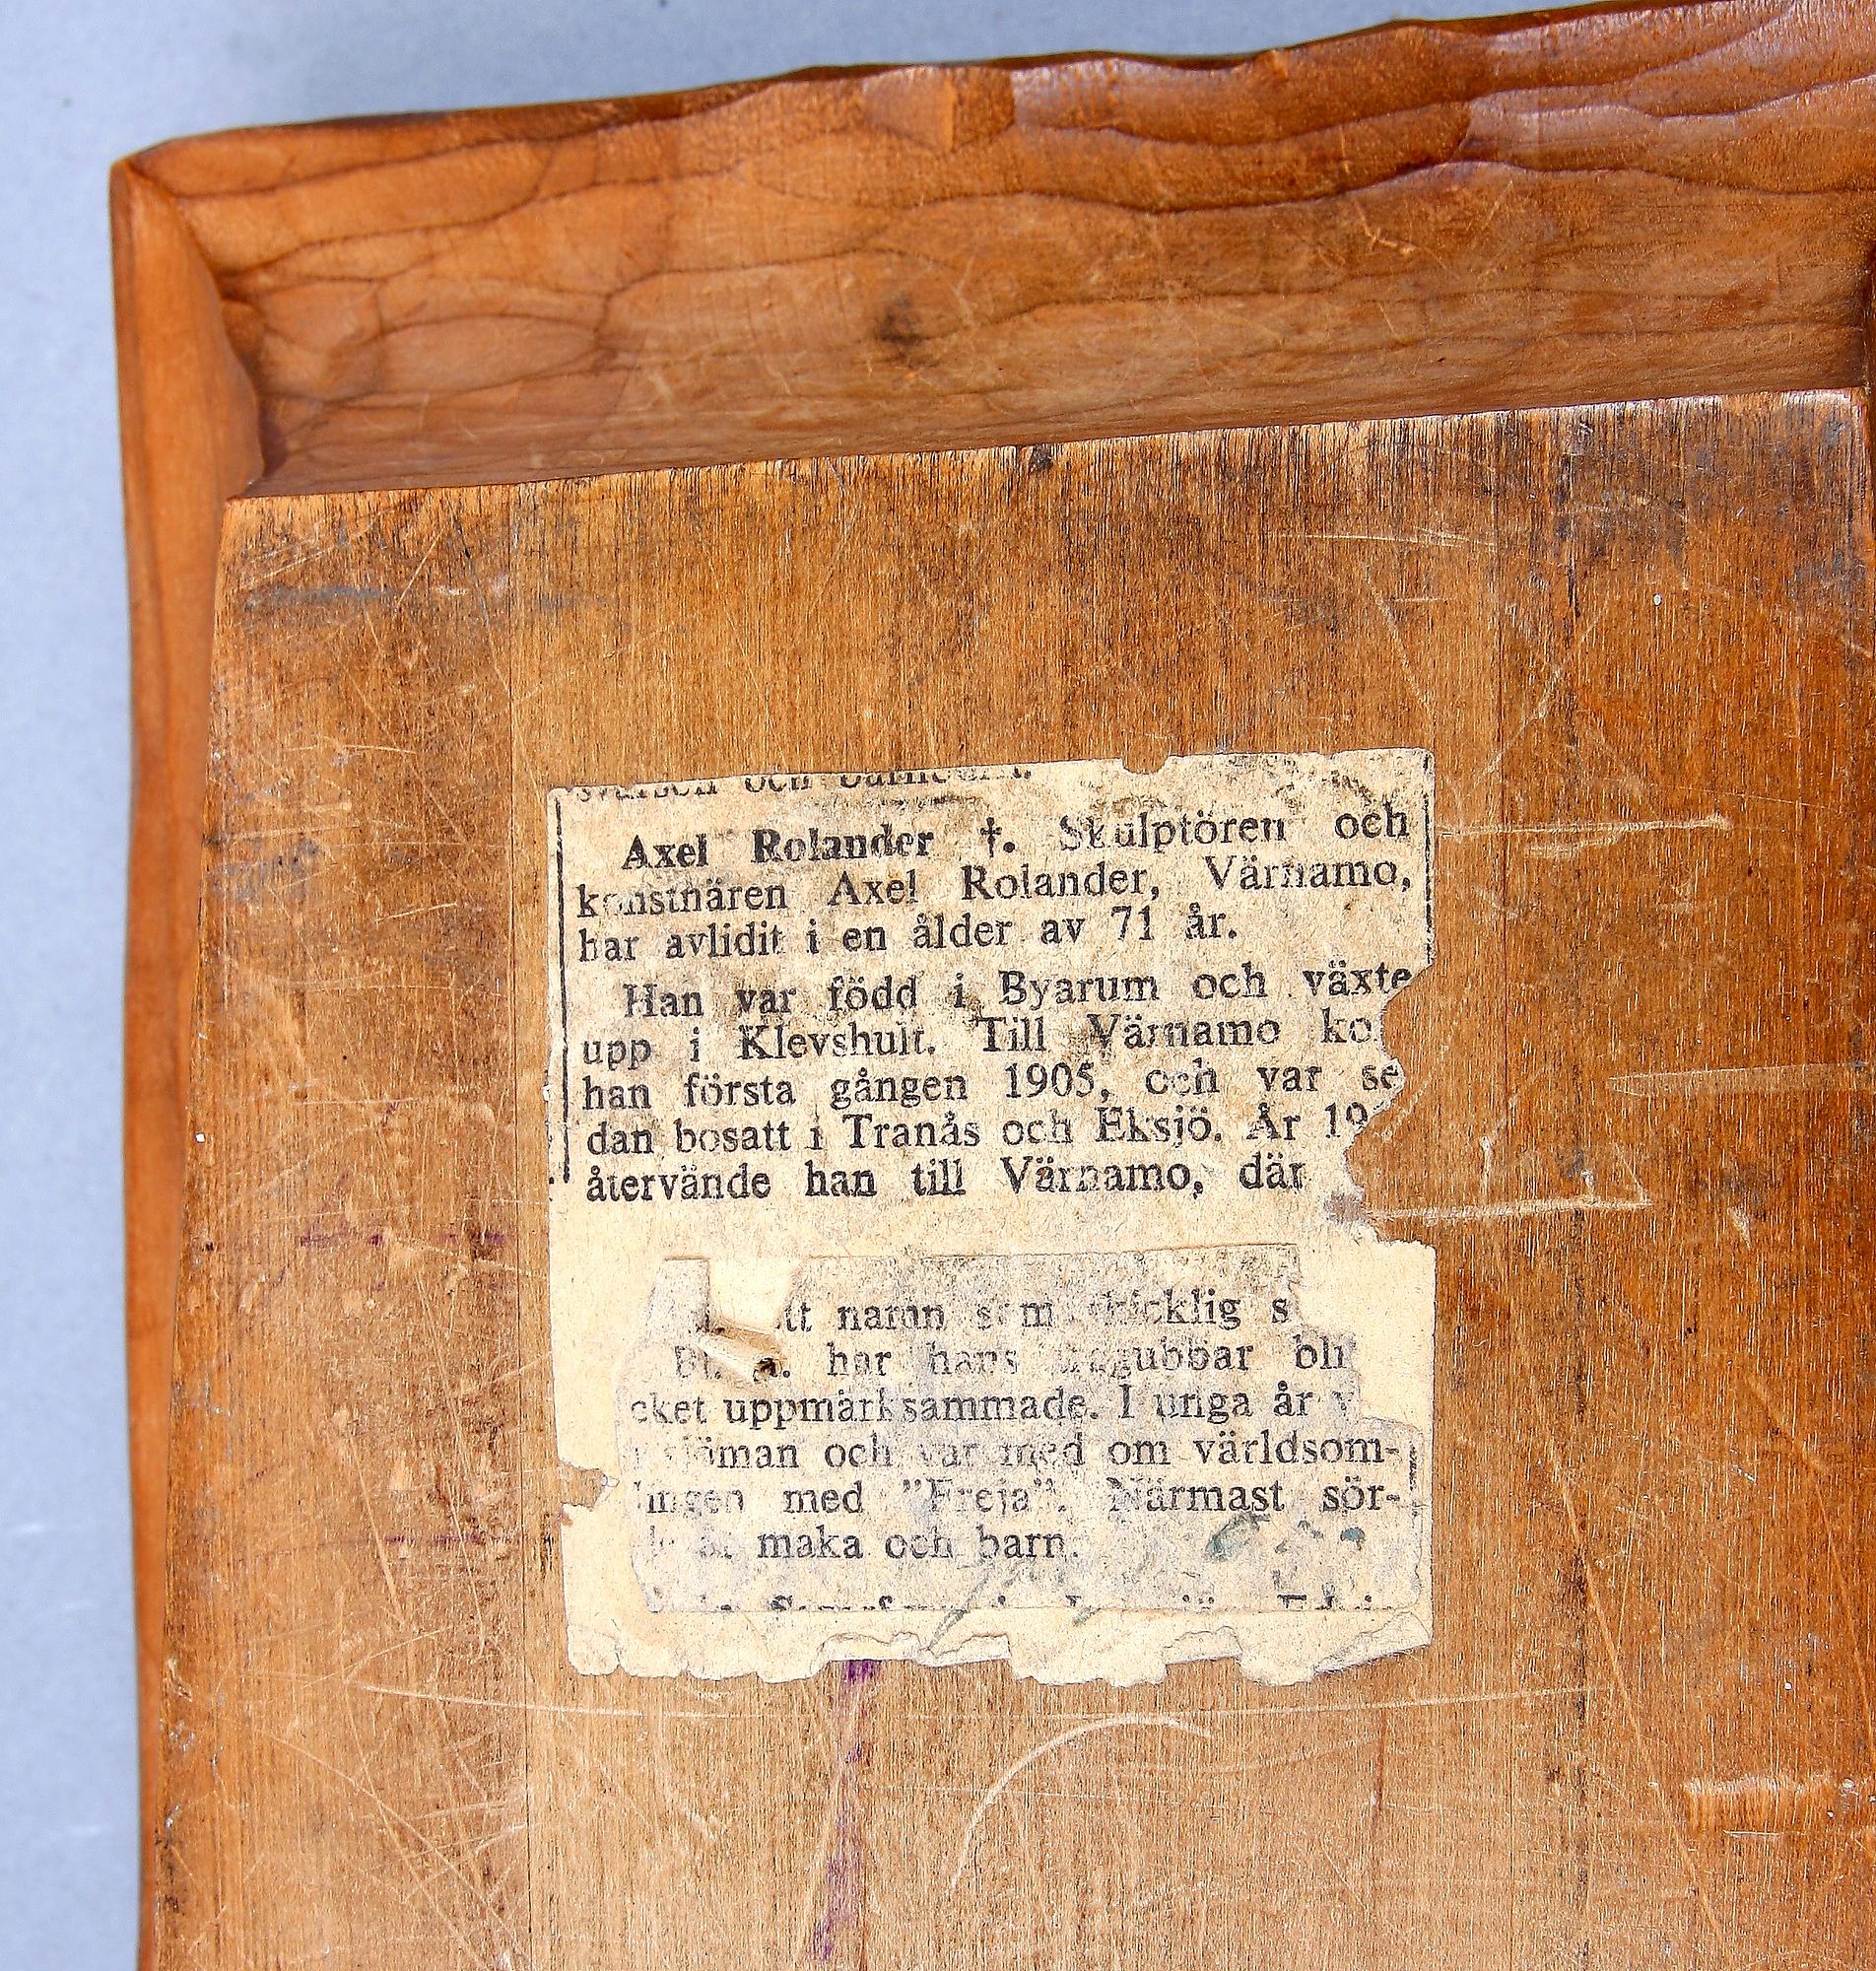 Axel Rolander †. Skulptören och
konstnären Axel Rolander, Värnamo,
har avlidit i en ålder av 71 år.
Han var född i Byarum och växte
upp i Klevshult. Till Värnamo
han första gången 1905, och var se
dan bosatt i Tranås och Eksjö. År
återvände han till Värnamo, där
namn som skicklig
har hans
cket uppmärksammade. I unga år
sjöman och var med om världsom-
med "Freja". Närmast sör-
maka och barn.